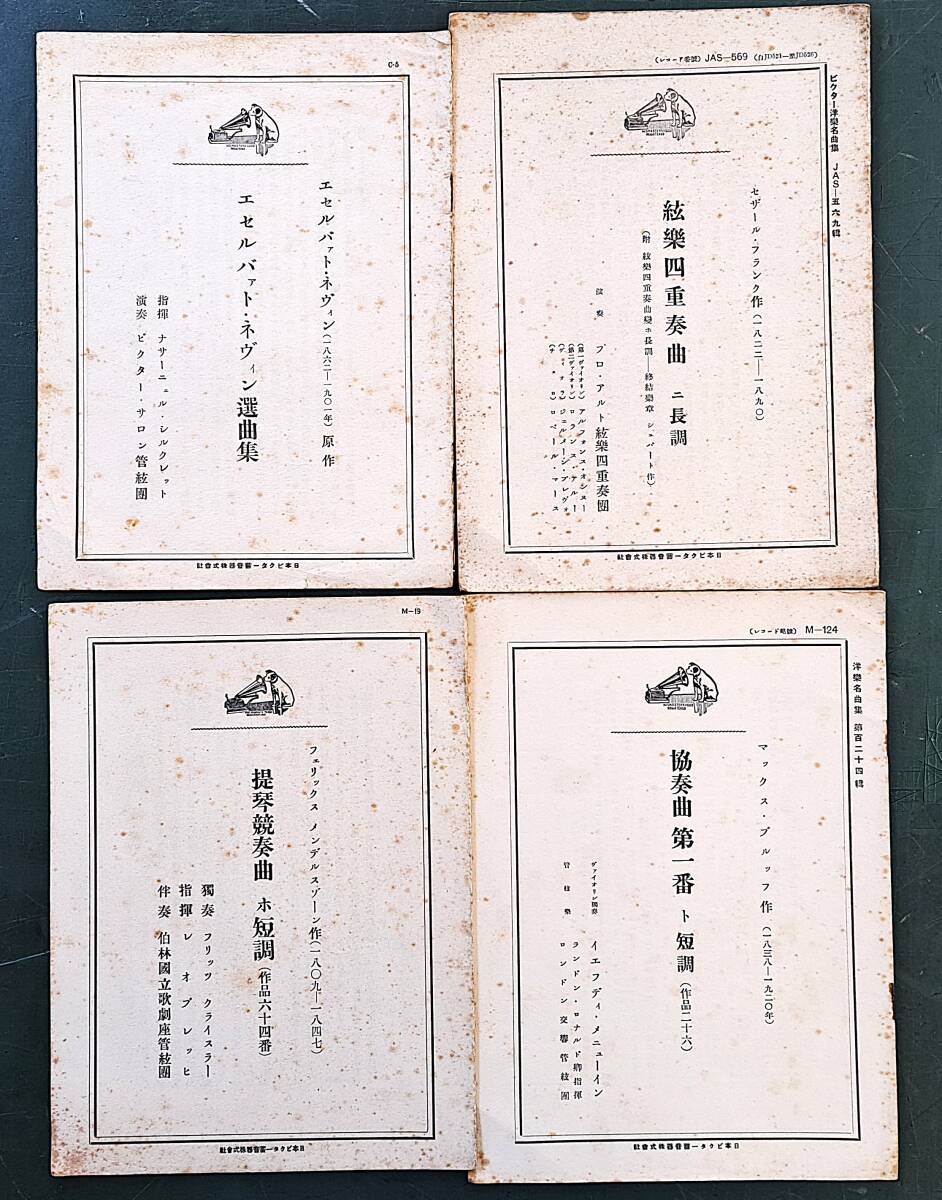 C-5
エセルバァト・ネヴィン(一八六二—一九〇一年)原作
エセルバァト・ネヴィン選曲集
指揮 ナサーニェル・シルクレット
演奏 ビクター・サロン管絃團
日本ビクター蓄音器株式會社
(レコード番號) JAS—569 (自JD521—至JD526)
ビクター洋樂名曲集 JAS—五六九輯
セザール・フランク作(一八二二—一八九〇)
絃樂四重奏曲 ニ長調
(附 絃樂四重奏曲變ホ長調—終結樂章 シューバート作)
演奏 プロ・アルト絃樂四重奏團
(第一ヴァイオリン) アルフォンス・オンヌー
(第二ヴァイオリン) ロランス・アルー
(ヴィオラ) ジェルメーン・プレヴォ
(チェロ) ロベール・マース
日本ビクター蓄音器株式會社
M-19
フェリックス メンデルスゾーン作(一八〇九—一八四七)
提琴競奏曲 ホ短調(作品六十四番)
獨奏 フリッツ クライスラー
指揮 レオブレッヒ
伴奏 伯林國立歌劇座管絃團
日本ビクター蓄音器株式會社
(レコード略號) M—124
洋樂名曲集 第百二十四輯
マックス・ブルッフ作(一八三八—一九二〇年)
協奏曲 第一番 ト短調(作品二十六)
ヴァイオリン獨奏 イエフディ・メニューイン
管絃樂 ランドン・ロナルド卿指揮
ロンドン交響管絃團
日本ビクター蓄音器株式會社